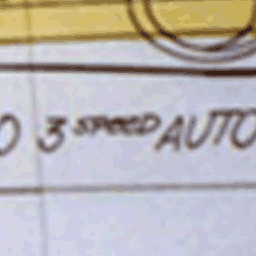 0 3 SPEED AUTO